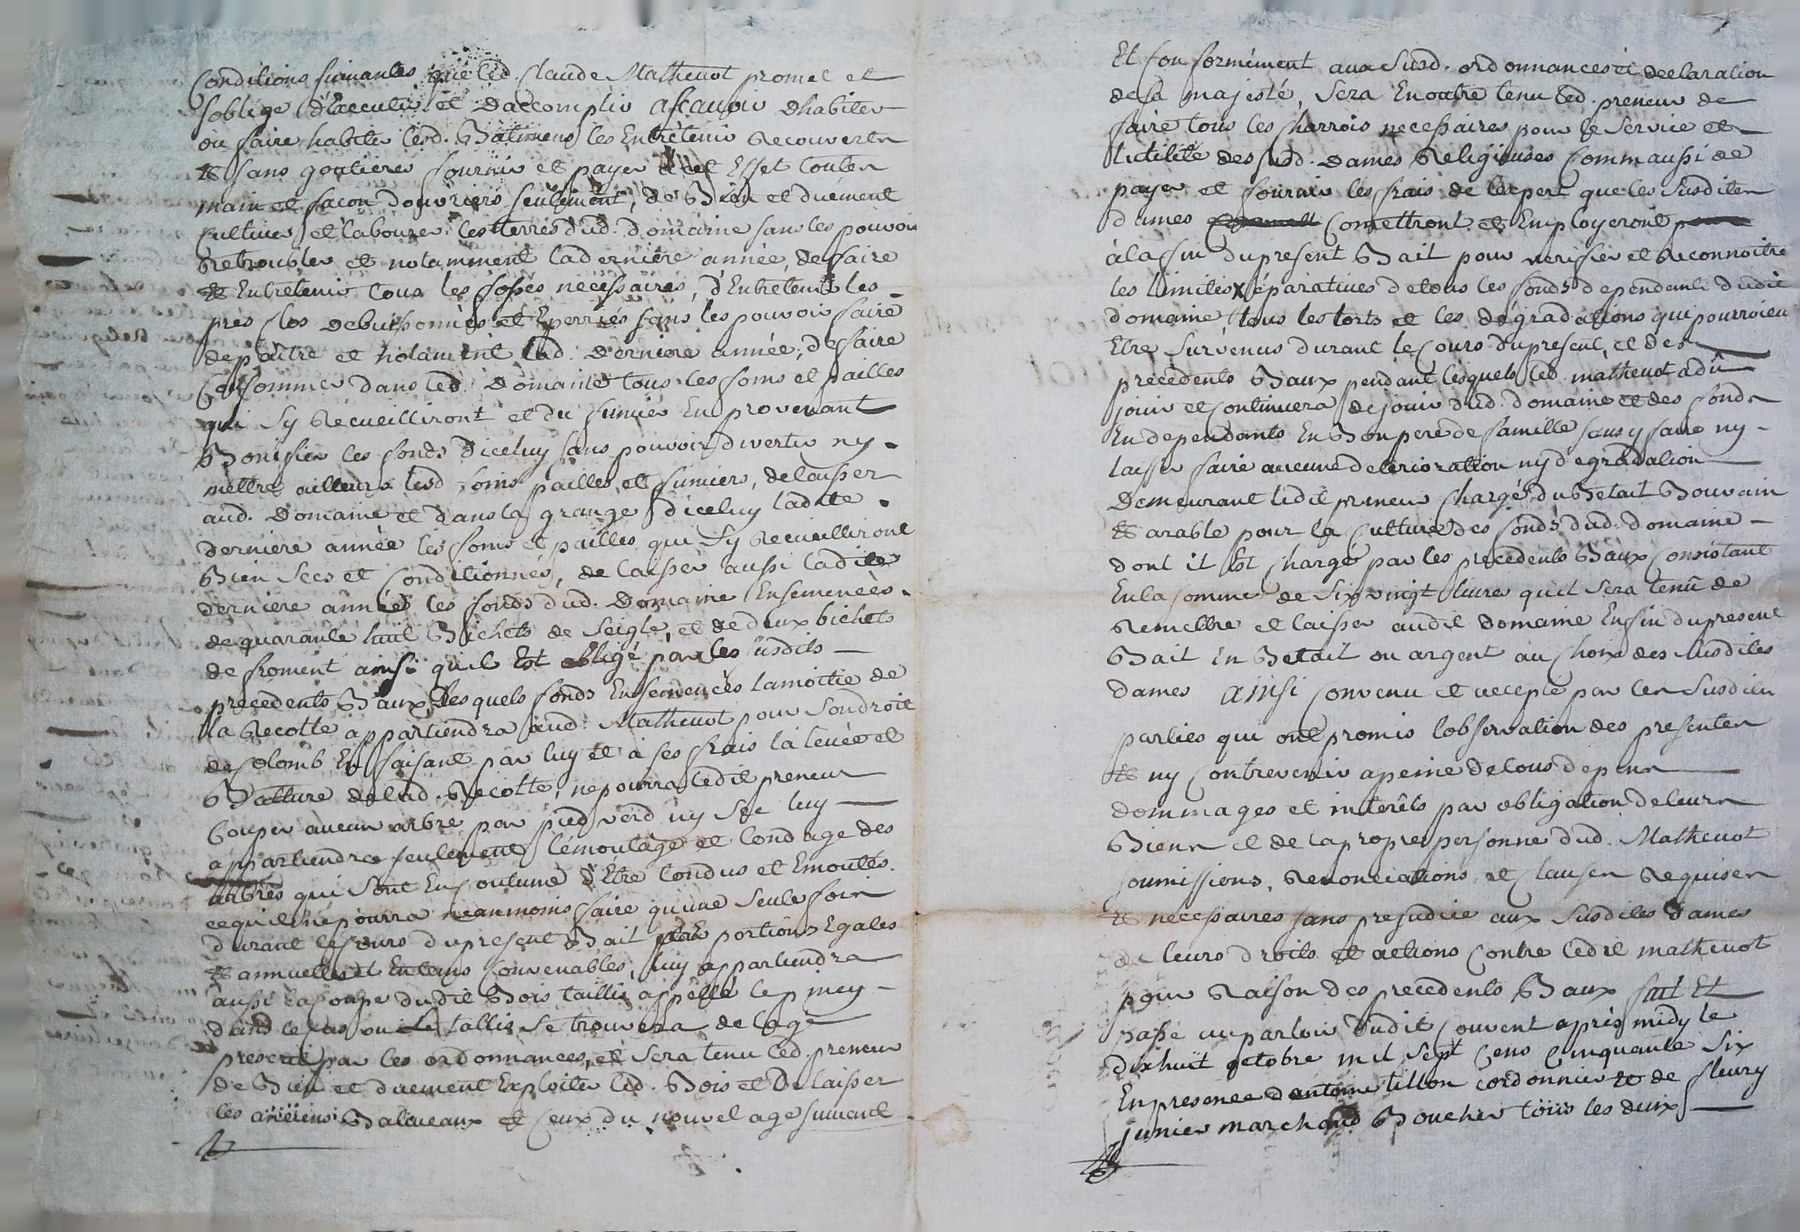 Conditions suivantes que led. Claude Mathevot promet et
soblige d'Executer et daccomplir ascavoir dhabiter
ou faire habiter lesd. Batimens les Entretenir Recouverts
et sans goutieres fournir et payer a cet Effet toutes
main et facon douvriers seulement, de Bien et duement
cultiver et labourer les terres dud. domaine sans les pouvoir
Retroubler et notamment la derniere année, de faire
et Entretenir tous les fossés necessaires, d'Entretenir les
prés clos debuissonnés et Eperrés sans les pouvoir faire
depaitre et notament lad. derniere année, de faire
Consommer dans led. Domaine tous les foins et pailles
qui sy Recueilliront et du fumier En provenant
Bonifier les fonds diceluy sans pouvoir divertir ny
mettre ailleurs lesd. foins pailles et fumier, de laisser
aud. Domaine et dans la grange diceluy ladite
derniere année les foins et pailles qui sy Recueilliront
Bien secs et Conditionnés, de laisser aussi ladite
derniere année les fonds dud. Domaine Ensemencés
de quarante huit Bichets de Seigle, et de deux bichets
de froment ainsi quil Est obligé par les susdits
precedents Baux, desquels fonds Ensemencés la moitie de
la Recolte appartiendra aud. Mathevot pour son droit
de colomb En faisant par luy et a ses frais la levée et
Batture de lad. Recolte, ne pourra ledit preneur
Couper aucun arbre par pied verd ny sec luy
appartiendra seulement l'émoutage et tondage des
arbres qui sont En coutume d'Etre tondus et Emoutés.
ce quil ne pourra neanmoins faire qu'une seule fois
durant le cours du present Bail par portions Egales
et annuelles et En tems convenables, luy appartiendra
aussi la coupe dudit Bois taillis appellé le piney
dans le cas ou le tallis se trouvera de lage
prescrit par les ordonnances, et sera tenu led. preneur
de Bien et duement Exploiter led. Bois et De laisser
les anciens Baliveaux et Ceux du nouvel age suivant
Et Conformément aux susd. ordonnances et declaration
de sa majesté, sera En outre tenu led. preneur de
faire tous les charrois necessaires pour le service et
lutilité des susd. Dames Religieuses Comm aussi de
payer et fournir les frais de lexpert que les susdites
dames Comettront et Employeront
à la fin du present Bail pour verifier et Reconnoitre
les limites séparatives de tous les fonds dependants dudit
domaine, tous les torts et les dégradations qui pourroient
Etre survenus durant le Cours du present, et des
précédents Baux pendant lesquels led. mathevot a dû
jouir et continuera de jouir dud. domaine et des fonds
En dependants En Bon pere de famille sans y faire ny
laisser faire aucune deterioration ny degradation
Demeurant ledit preneur chargé du Betail Bouvain
et arable pour la culture des fonds dud. domaine
dont il Est chargé par les precedents Baux Consistant
En la somme de six vingt livres quil sera tenû de
Remettre et laisser audit domaine En fin du present
Bail En Betail ou argent au choix des susdites
dames ainsi convenu et accepté par les susdites
parties qui ont promis lobservation des presentes
et ny contrevenir a peine de tous depens
dommages et intérêts par obligation de leurs
Biens et de la propre personne dud. Mathevot
soumissions, Renonciations, et clauses Requises
et necessaires sans prejudice aux susdites dames
de leurs droits et actions contre ledit mathevot
pour Raison des precedents Baux fait Et
passé au parloir dudit Couvent après midy le
dixhuit octobre mil sept cens cinquante six
En presence dantoine tillon cordonnier et de fleury
junier marchand Boucher tous les deux